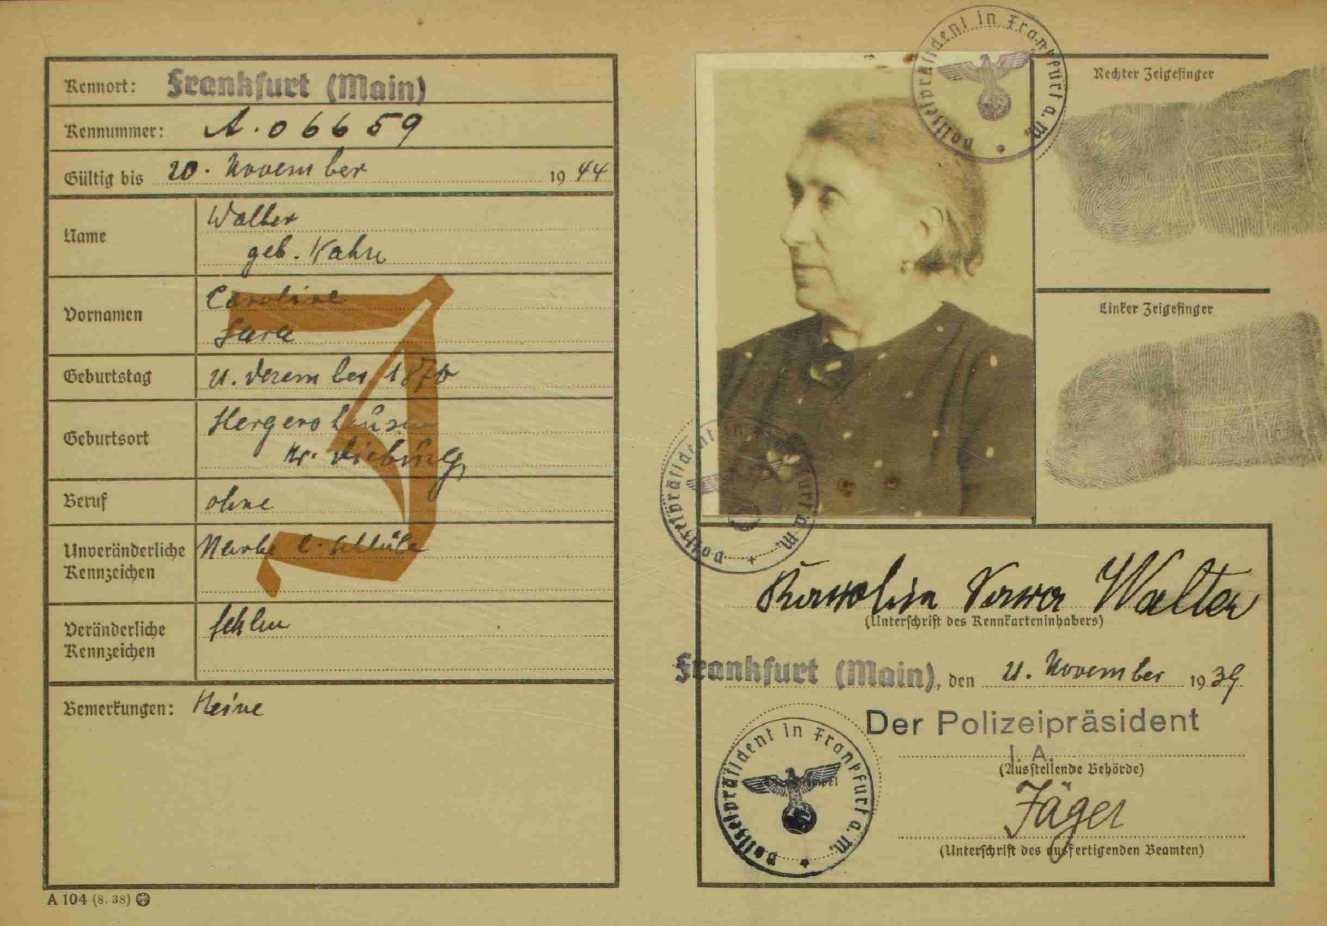 Kennort: Frankfurt (Main)
Kennummer: A. 06659
Gültig bis 20. November 1944
Name Walter
geb. Kahn
Vornamen Caroline
Sara
J
Geburtstag 21. Dezember 1870
Geburtsort Hergershausen
Kr. Dieburg
Beruf ohne
Unveränderliche Kennzeichen Narbe l. Schläfe
Veränderliche Kennzeichen fehlen
Bemerkungen: Keine
A 104 (8. 38)
Polizeipräsident in Frankfurt a. M.
Rechter Zeigefinger
Linker Zeigefinger
Polizeipräsident in Frankfurt a. M.
Karolina Sara Walter
(Unterschrift des Kennkarteninhabers)
Frankfurt (Main), den 21. November 1939
Der Polizeipräsident
I. A.
(Ausstellende Behörde)
Polizeipräsident in Frankfurt a. M.
Jäger
(Unterschrift des ausfertigenden Beamten)